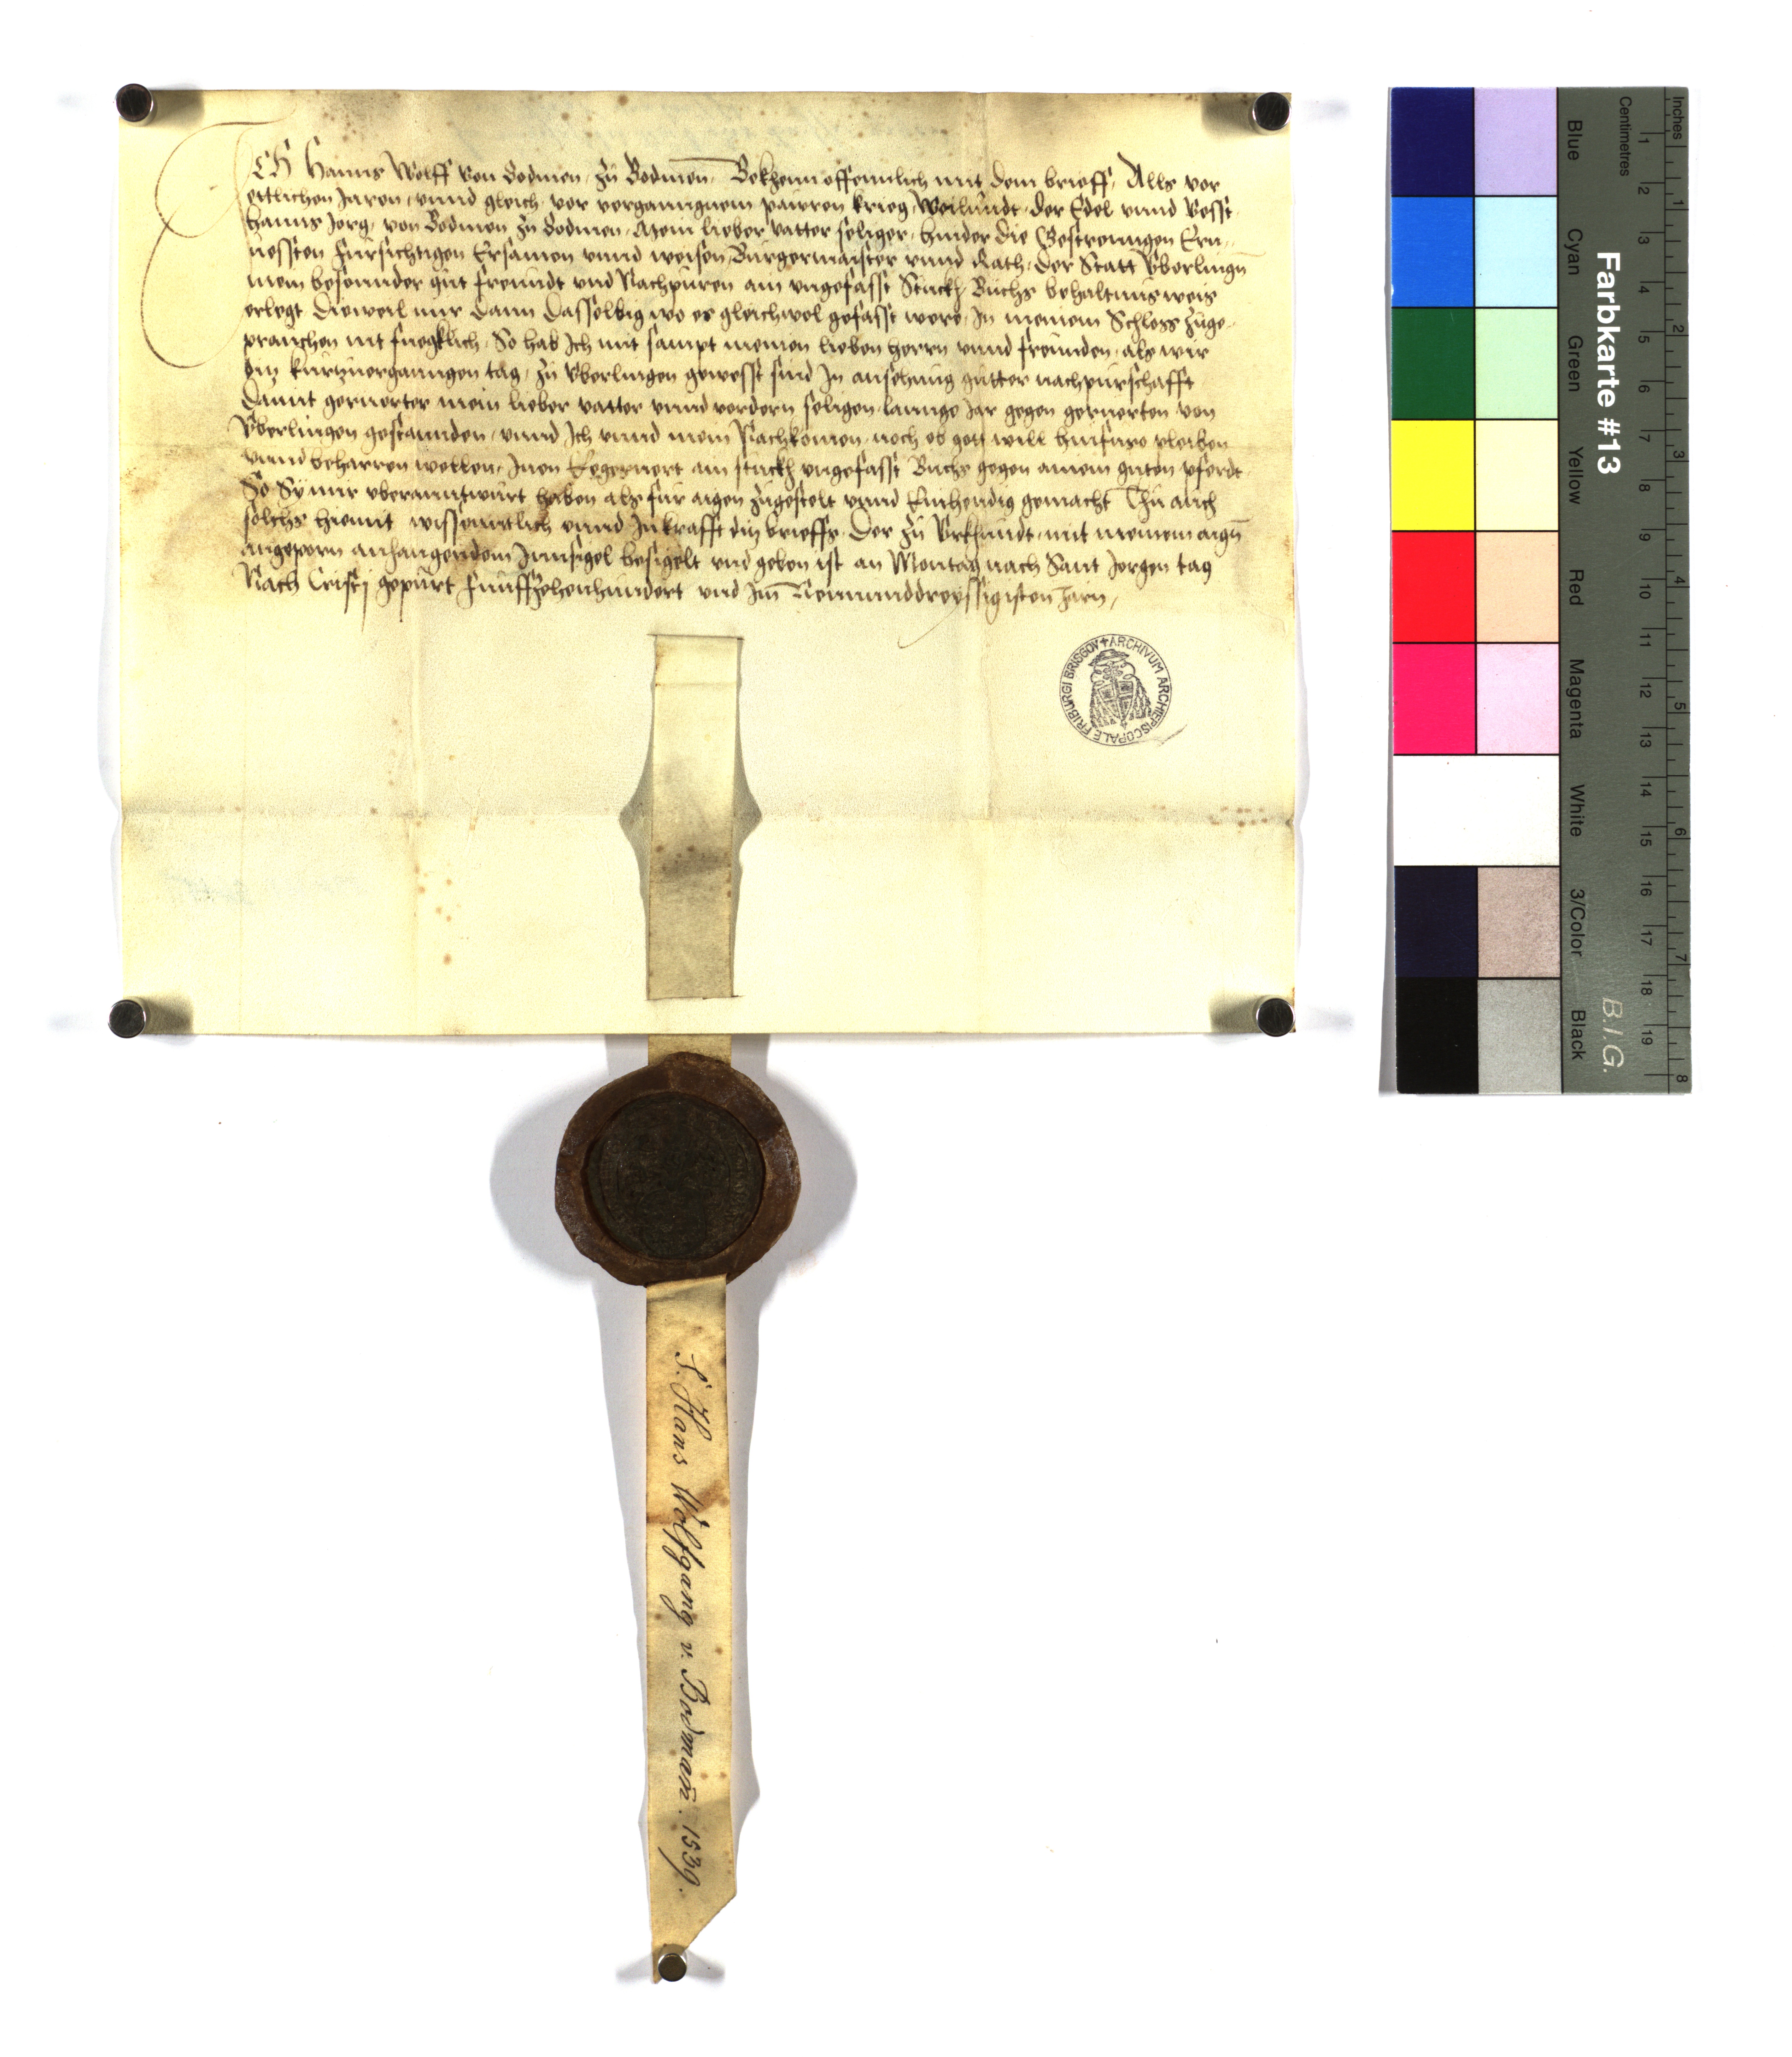 ICH Hanns Wolff von Bodmen zů Bodmen Bekhenn offennlich mit dem brieff, Alls vor
ettlichen Jaren vnnd gleich vor vergangnem pawren krieg Weilundt der Edel vnnd Vesst
Hanns Jorg von Bodmen zů Bodmen Mein lieber vatter seliger hinder die Gestrenngen Ern-
uessten Fursichtigen Ersamen vnnd weisen Burgermaister vnnd Rath der Statt Vberlingn
mein besonnder gůt freundt vnd Nachpuren ain vngefasst Stuckh Buchs behaltnusweis
erlegt Dieweil mir dann dasselbig wo es gleichwol gefasst were, In meinem Schloss zuge-
prauchen nit fuegklich, So hab Ich mit sampt meinen lieben herrn vnnd freunden als wir
diz kurtzuergangen tag zů Vberlingen gewesst sind In ansehung gutter nachpurschafft
Damit geruerter mein lieber vatter vnnd vordern seligen lannge Jar gegen geruerten von
Vberlingen gestannden vnnd Ich vnnd mein Nachkomen noch ob gott will hinfuro pleiben
vnnd beharren wellen, Inen Eegeruert ain stuckh vngefasst Buchs gegen ainem guten pferdt
So Sy mir vberanntwurt haben als fur aigen zugestelt vnnd Einhendig gemacht Thů auch
solchs hiemit wissenntlich vnnd In krafft diz brieffs, Der zů Vrkhundt mit meinem aign
angeporn anhangendem Innsigel besigelt vnd geben ist an Montag nach Sant Jorgen tag
Nach Cristj gepurt Funffzehenhundert vnd Im Neinunddreyssigisten Jarn,
ARCHIVUM ARCHIEPISCOPALE FRIBURGI BRISGOV
S. Hans Wolfgang v. Bodman̄. 1539.
Farbkarte #13
B.I.G.
Inches 1 2 3 4 5 6 7 8
Centimetres 1 2 3 4 5 6 7 8 9 10 11 12 13 14 15 16 17 18 19
Blue Cyan Green Yellow Red Magenta White 3/Color Black